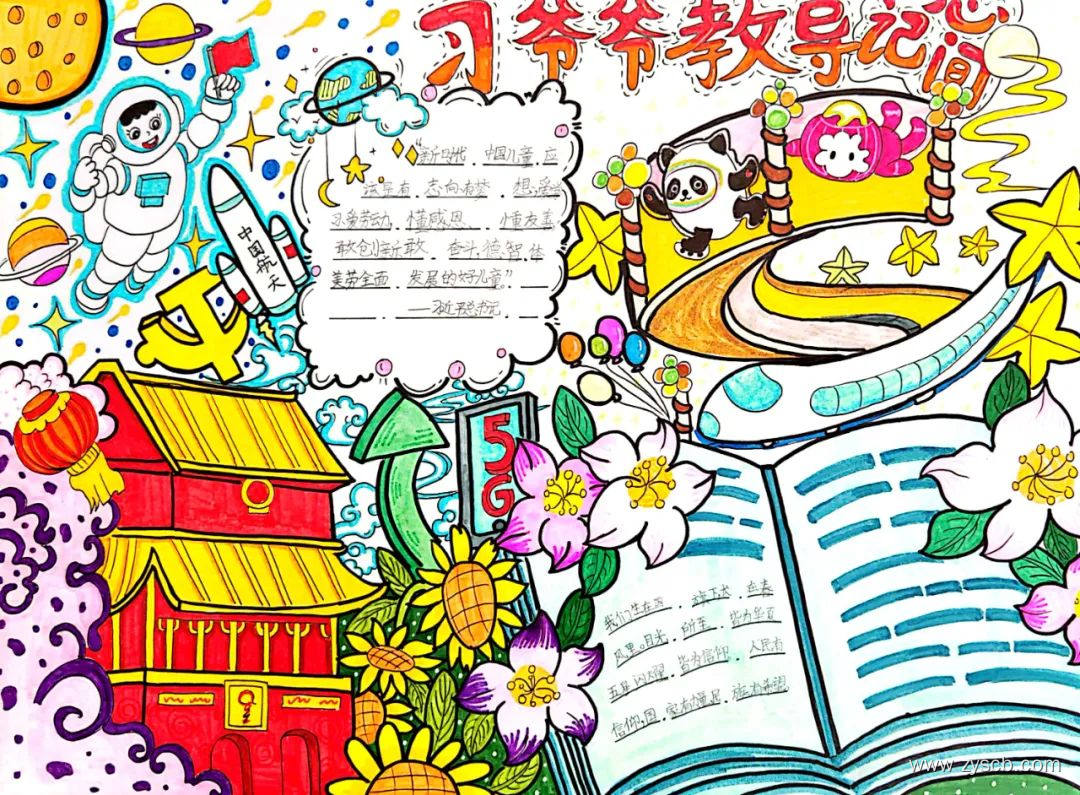 习爷爷教导记心间
"新时代 中国儿童 应
该是有 志向有梦 想,爱学
习爱劳动,懂感恩 懂友善
敢创新敢 奋斗,德智体
美劳全面 发展的好儿童."
——习近平总书记
中国航天
5G
我们生在 旗下长 在春
风里。目光 所至 皆为华夏
五星闪耀 皆为信仰 人民有
信仰,国 家有 有希望
www.zyscb.com